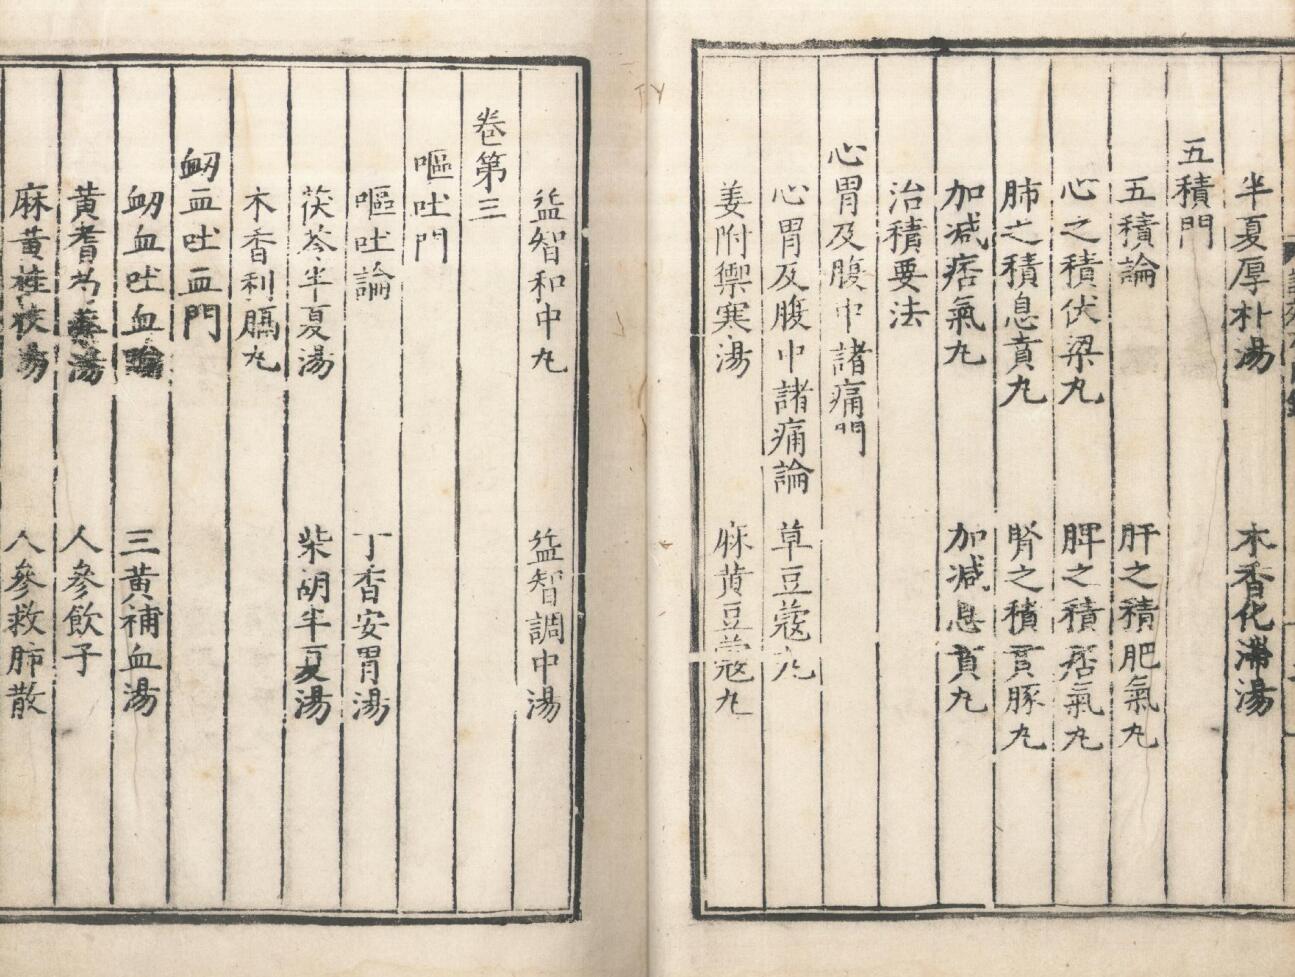 半夏厚朴湯　木香化滯湯
五積門
五積論　肝之積肥氣丸
心之積伏梁丸　脾之積痞氣丸
肺之積息賁丸　腎之積賁豚丸
加減痞氣丸　加減息賁丸
治積要法
心胃及腹中諸痛門
心胃及腹中諸痛論　草豆蔻丸
姜附禦寒湯　麻黄豆蔻丸
益智和中丸　益智調中湯
卷第三
嘔吐門
嘔吐論　丁香安胃湯
茯苓半夏湯　柴胡半夏湯
木香利膈丸
衂血吐血門
衂血吐血論　三黄補血湯
黄耆芍藥湯　人參飲子
麻黄桂枝湯　人參救肺散